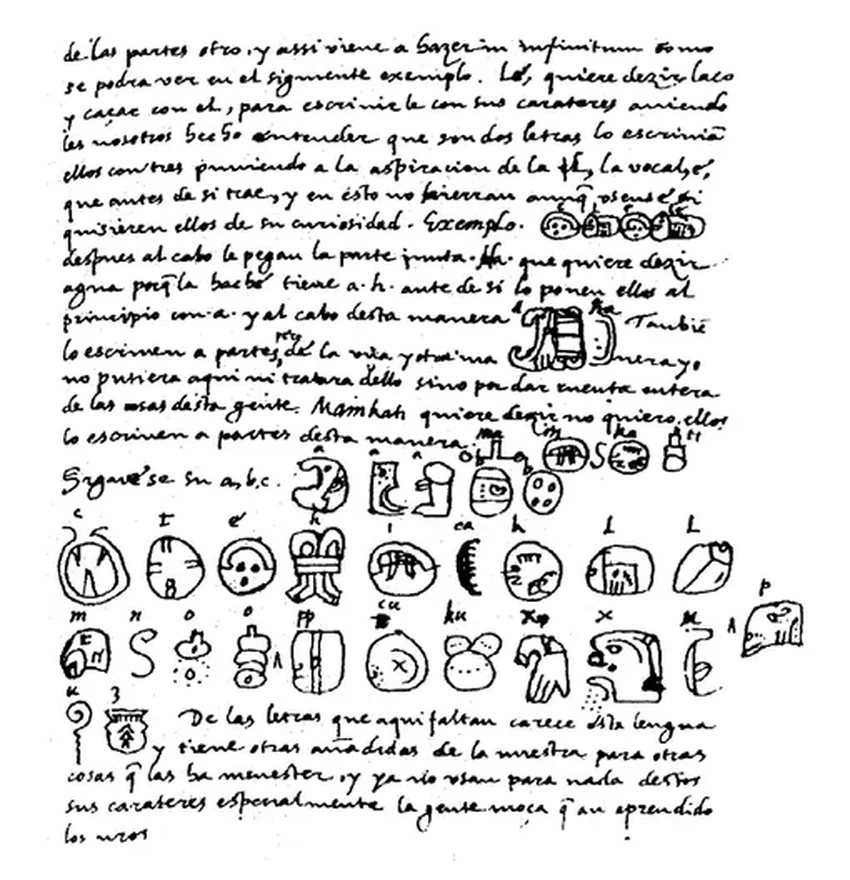 de las partes otro, y assi viene a hazer in infinitum como
se podra ver en el siguiente exemplo. Lé, quiere dezir laço
y caçar con el, para escriuirle con sus carateres auiendo
les nosotros hecho entender que son dos letras lo escriuiã
ellos con tres puniendo a la aspiracion de la l, la vocal, é,
que antes de si trae, y en esto no hierran aunq̃ vsense, si
quisieren ellos de su curiosidad. Exemplo.
despues al cabo le pegan la parte junta. Ha. que quiere dezir
agua porq̃ la hache tiene a. h. ante de si lo ponen ellos al
principio con a. y al cabo desta manera a ha Tambiẽ
lo escriuen a partes, de la vna y otra ma nera yo
no pusiera aqui ni tratara dello sino por dar cuenta entera
de las cosas desta gente. Mainkati quiere dezir no quiero, ellos
lo escriuen a partes desta manera. ma in ka ti
Siguese su a, b, c. a a a b b
c t e h i ca k l l
p
m n o o pp cu ku x x u
u z De las letras que aqui faltan carece esta lengua
y tiene otras añadidas de la nuestra para otras
cosas q̃ las ha menester, y ya no vsan para nada destos
sus carateres especialmente la gente moça q̃ an aprendido
los nros